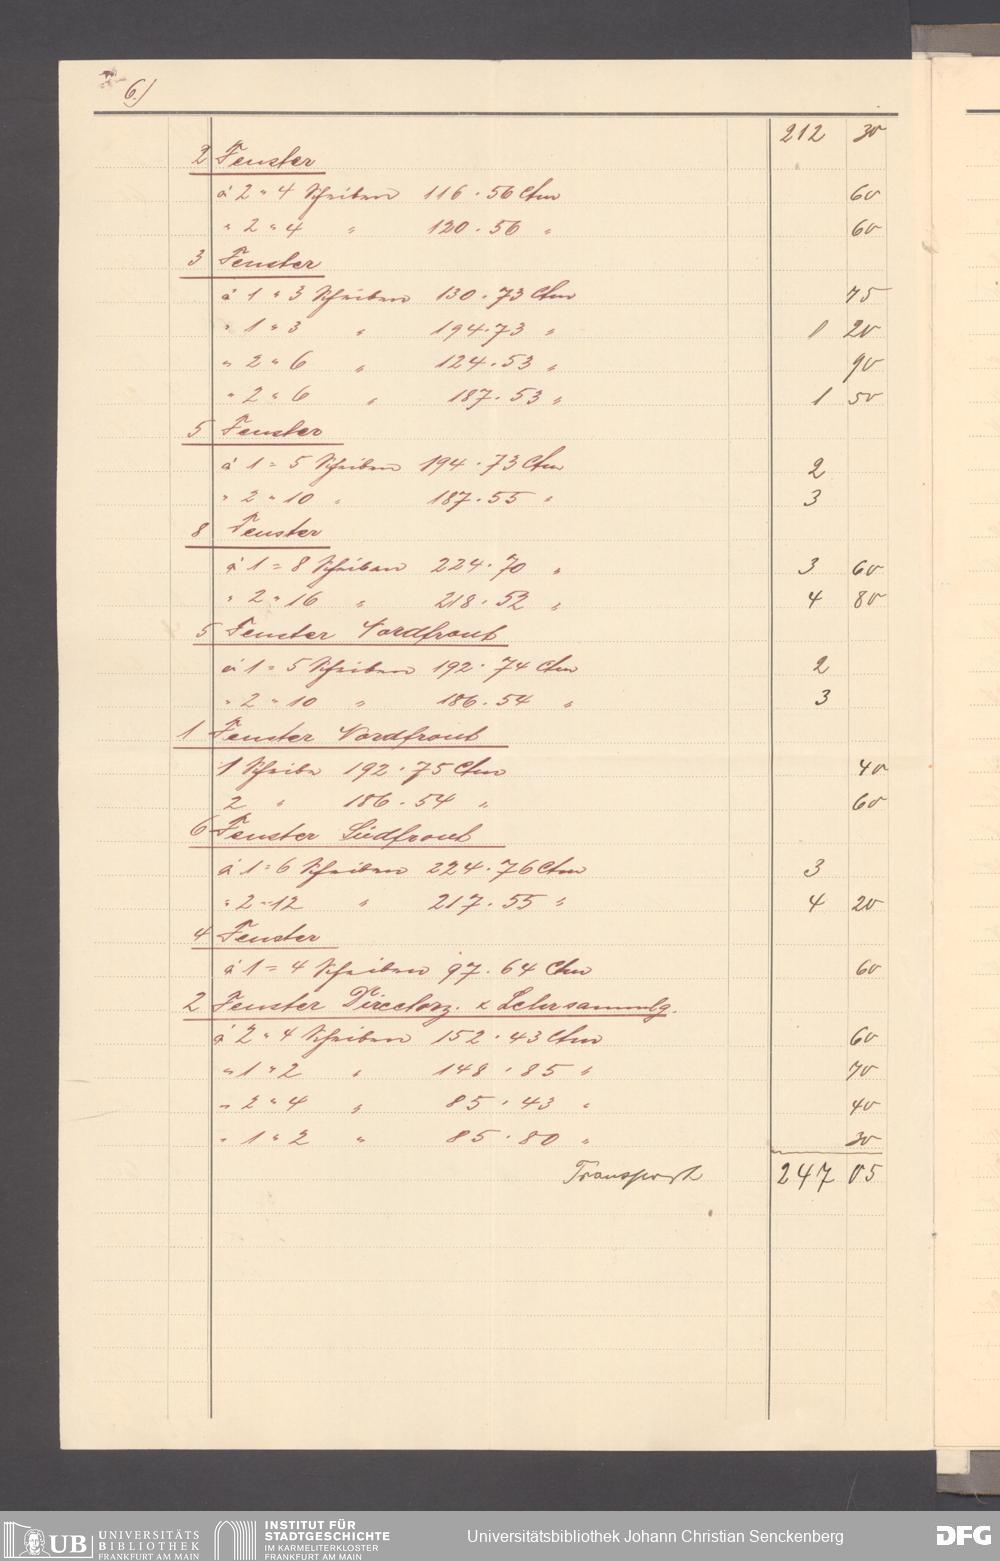 6.)
212 30
2 Fenster
à 2 = 4 Scheiben 116 · 56 Ctm 60
" 2 " 4 " 120 · 56 " 60
3 Fenster
à 1 = 3 Scheiben 130 · 73 Ctm 75
" 1 " 3 " 194 · 73 " 1 20
" 2 " 6 " 124 · 53 " 90
" 2 " 6 " 187 · 53 " 1 50
5 Fenster
à 1 = 5 Scheiben 194 · 73 Ctm 2
" 2 " 10 " 187 · 55 " 3
8 Fenster
à 1 = 8 Scheiben 224 · 70 " 3 60
" 2 " 16 " 218 · 52 " 4 80
5 Fenster Nordfront
à 1 = 5 Scheiben 192 · 74 Ctm 2
" 2 " 10 " 186 · 54 " 3
1 Fenster Nordfront
1 Scheibe 192 · 75 Ctm 40
2 " 186 · 54 " 60
6 Fenster Südfront
à 1 = 6 Scheiben 224 · 76 Ctm 3
" 2 = 12 " 217 · 55 " 4 20
4 Fenster
à 1 = 4 Scheiben 97 · 64 Ctm 60
2 Fenster Directorz. & Lehrsammlg.
à 2 = 4 Scheiben 152 · 43 Ctm 60
" 1 " 2 " 148 · 85 " 70
" 2 " 4 " 85 · 43 " 40
" 1 " 2 " 85 · 80 " 30
Transport 247 05
UB UNIVERSITÄTS BIBLIOTHEK FRANKFURT AM MAIN
INSTITUT FÜR STADTGESCHICHTE IM KARMELITERKLOSTER FRANKFURT AM MAIN
Universitätsbibliothek Johann Christian Senckenberg
DFG